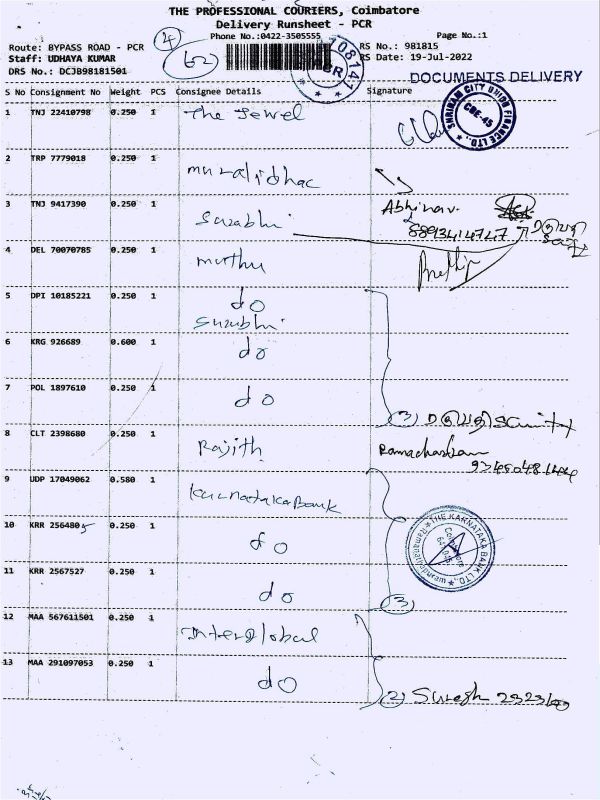 THE PROFESSIONAL COURIERS, Coimbatore
Delivery Runsheet - PCR
Phone No.:0422-3505555 Page No.:1
Route: BYPASS ROAD - PCR RS No.: 981815
Staff: UDHAYA KUMAR RS Date: 19-Jul-2022
DRS No.: DCJB98181501
4
62
108147
PCR
DOCUMENTS DELIVERY
S No Consignment No Weight PCS Consignee Details Signature
1 TNJ 22410798 0.250 1 The Jewel
SHRIRAM CITY UNION FINANCE LTD.,
CBE-45
2 TRP 7779018 0.250 1 muralidhar
3 TNJ 9417390 0.250 1 Surabhi Abhinav
8893414747
4 DEL 70070785 0.250 1 muthu
5 DPI 10185221 0.250 1 do
Surabhi
6 KRG 926689 0.600 1 do
7 POL 1897610 0.250 1 do
3)
8 CLT 2398680 0.250 1 Rajith
9 UDP 17049062 0.580 1 Karnataka Bank
10 KRR 2564805 0.250 1 do
THE KARNATAKA BANK LTD.,
Coimbatore
Ramanathapuram
11 KRR 2567527 0.250 1 do
3)
12 MAA 567611501 0.250 1 Interglobal
13 MAA 291097053 0.250 1 do
2) Suresh